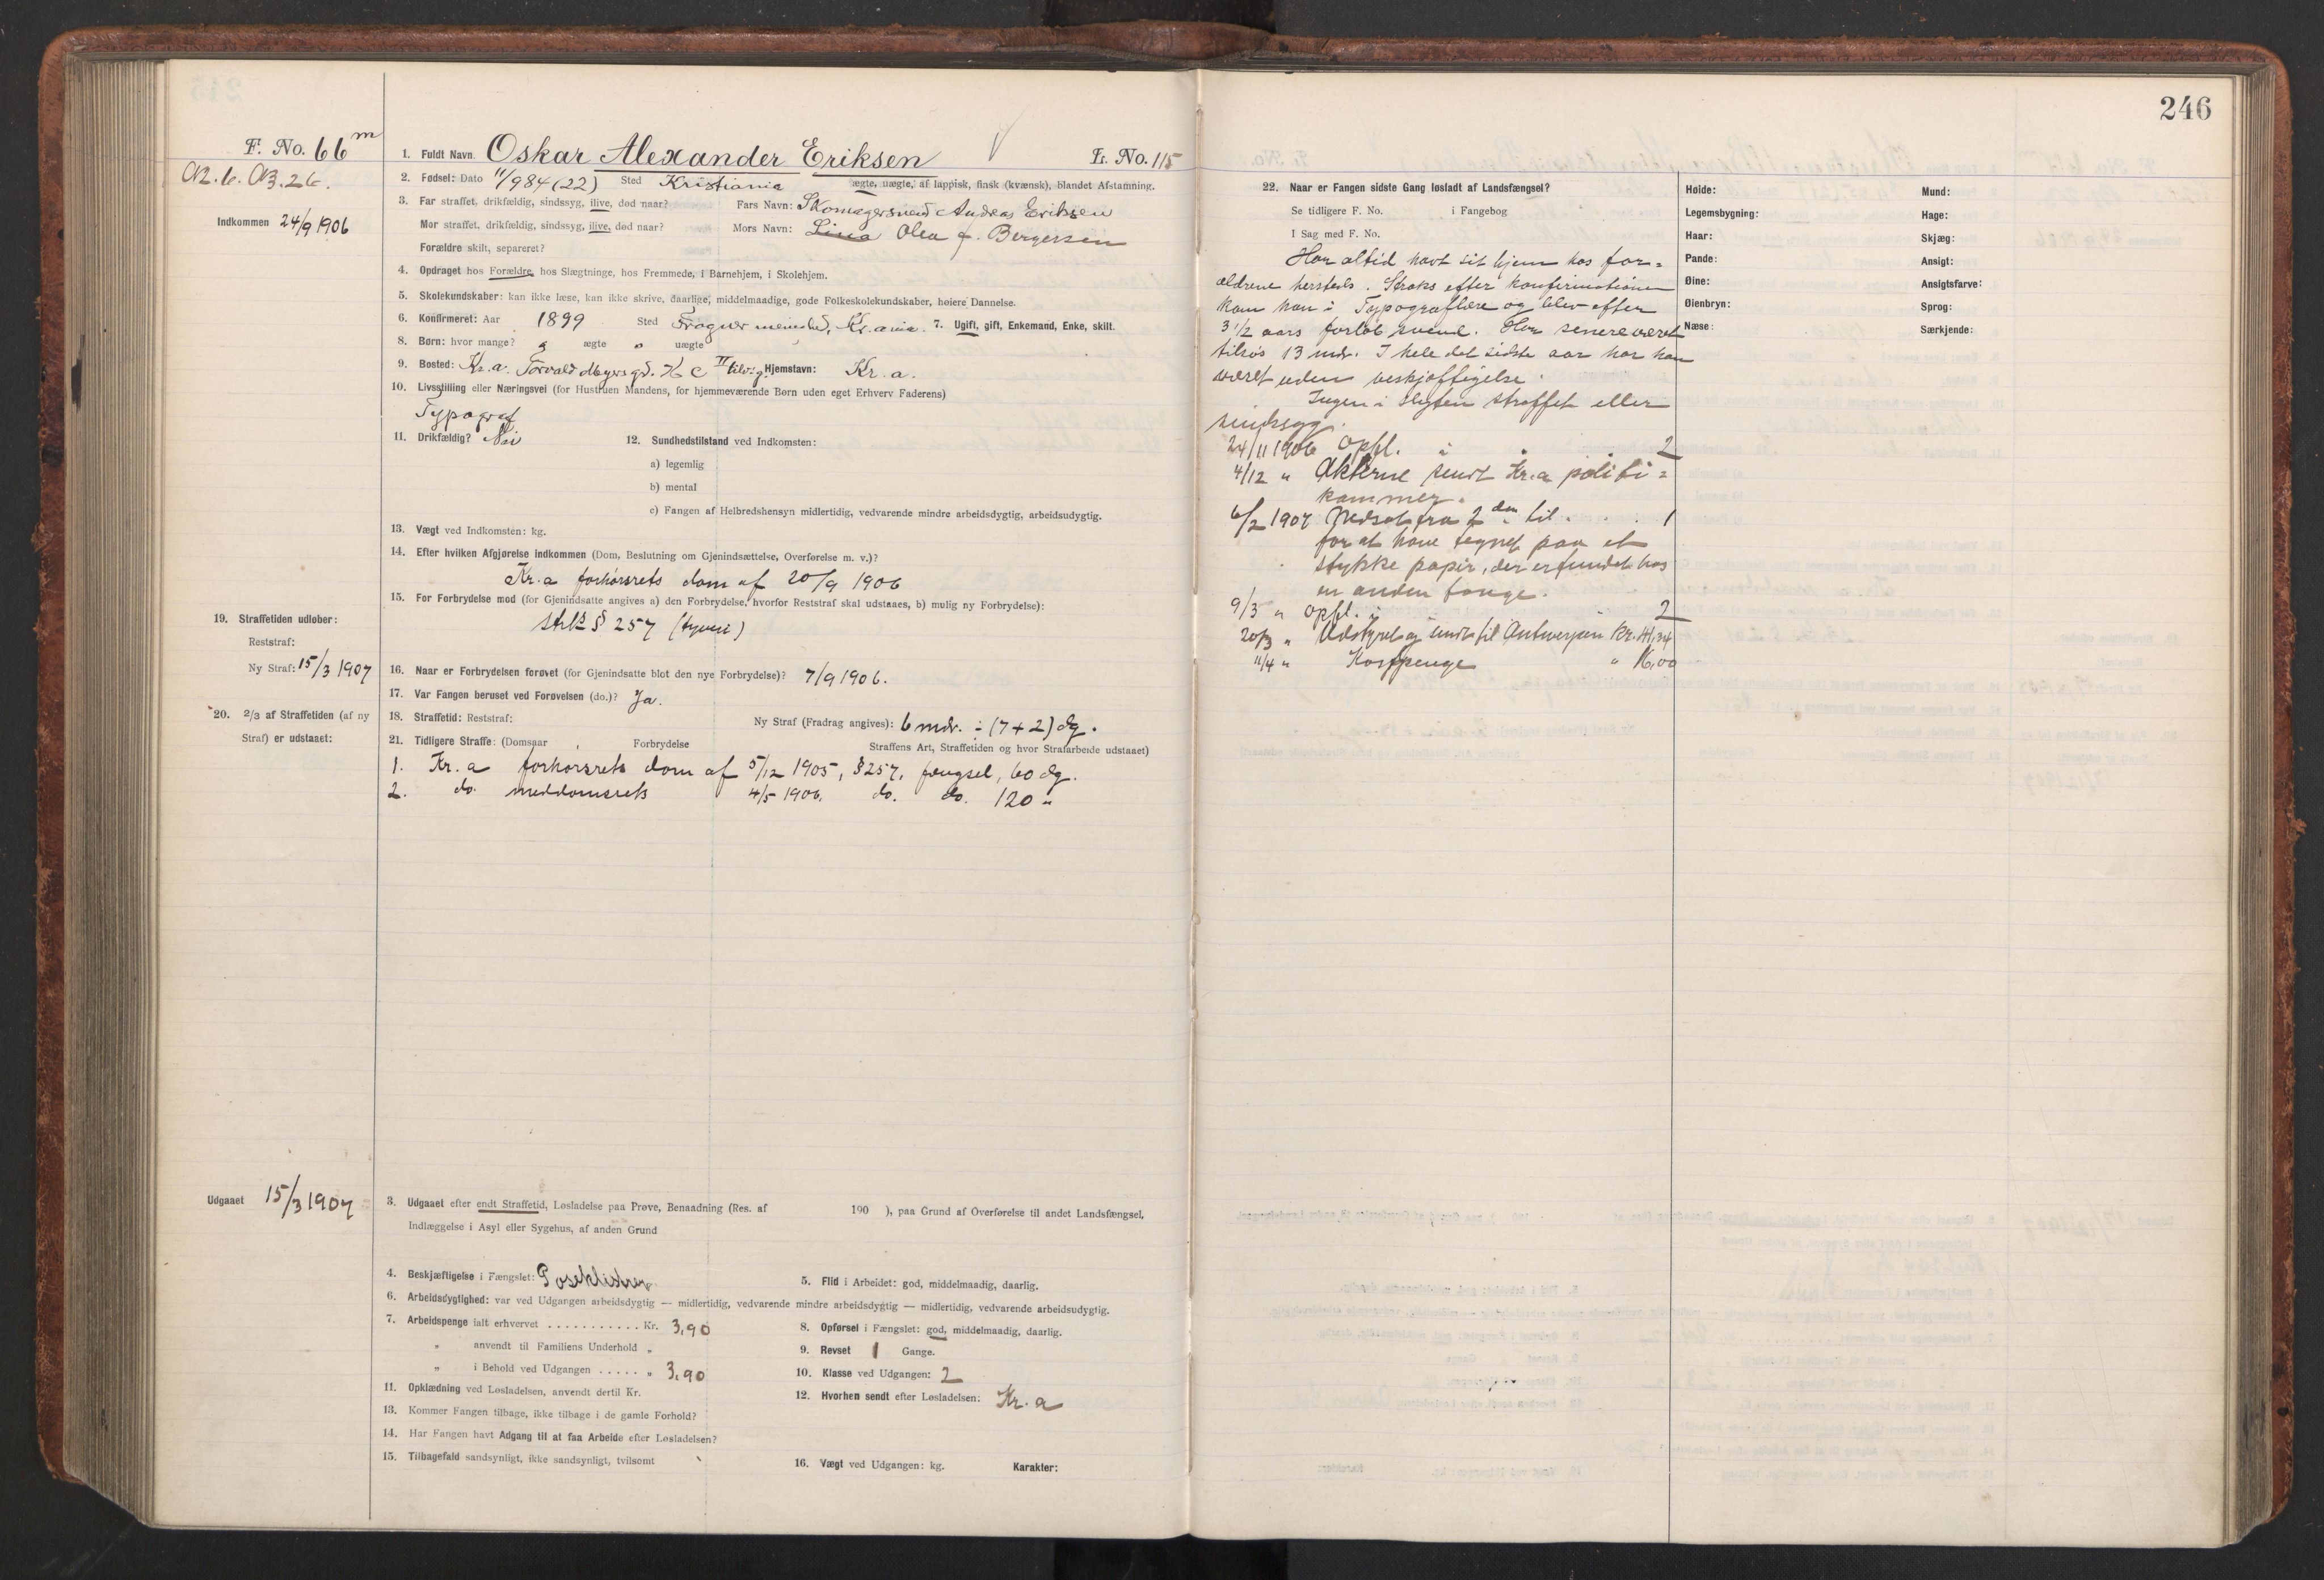 246
F. No. 66 m
A2. 6. A3. 26.
Indkommen 24/9 1906
1. Fuldt Navn Oskar Alexander Eriksen L. No. 115
2. Fødsel: Dato 11/9 84 (22) Sted Kristiania ægte, uægte, af lappisk, finsk (kvænsk), blandet Afstamning.
3. Far straffet, drikfældig, sindssyg, ilive, død naar? Fars Navn: Skomagersvend Andreas Eriksen
Mor straffet, drikfældig, sindssyg, ilive, død naar? Mors Navn: Lina Olea f. Bergersen
Forældre skilt, separeret?
4. Opdraget hos Forældre, hos Slægtninge, hos Fremmede, i Barnehjem, i Skolehjem.
5. Skolekundskaber: kan ikke læse, kan ikke skrive, daarlige, middelmaadige, gode Folkeskolekundskaber, høiere Dannelse.
6. Konfirmeret: Aar 1899 Sted Frogner menighed, Kr.ania. 7. Ugift, gift, Enkemand, Enke, skilt.
8. Børn: hvor mange? ægte " uægte
9. Bosted: Kr.a. Torvald Meyers gd. II Hjemstavn: Kr.a.
10. Livsstilling eller Næringsvei (for Hustruen Mandens, for hjemmeværende Børn uden eget Erhverv Faderens)
Typograf
11. Drikfældig? Nei 12. Sundhedstilstand ved Indkomsten:
a) legemlig
b) mental
c) Fangen af Helbredshensyn midlertidig, vedvarende mindre arbeidsdygtig, arbeidsudygtig.
13. Vægt ved Indkomsten: kg.
14. Efter hvilken Afgjørelse indkommen (Dom, Beslutning om Gjenindsættelse, Overførelse m. v.)?
Kr.a forhørsrets dom af 20/9 1906
15. For Forbrydelse mod (for Gjenindsatte angives a) den Forbrydelse, hvorfor Reststraf skal udstaaes, b) mulig ny Forbrydelse):
strl's § 257 (tyveri)
19. Straffetiden udløber:
Reststraf:
Ny Straf: 15/3 1907
16. Naar er Forbrydelsen forøvet (for Gjenindsatte blot den nye Forbrydelse)? 7/9 1906.
17. Var Fangen beruset ved Forøvelsen (do.)? Ja.
20. 2/3 af Straffetiden (af ny
Straf) er udstaaet:
18. Straffetid: Reststraf: Ny Straf (Fradrag angives): 6 mdr. ÷ (7 + 2) dg.
21. Tidligere Straffe: (Domsaar Forbrydelse Straffens Art, Straffetiden og hvor Strafarbeide udstaaet)
1. Kr.a forhørsrets dom af 5/12 1905, § 257, fængsel, 60 dg.
2. do. meddomsrets 4/5 1906. do. do. 120 "
Udgaaet 15/3 1907
3. Udgaaet efter endt Straffetid, Løsladelse paa Prøve, Benaadning (Res. af 190 ), paa Grund af Overførelse til andet Landsfængsel,
Indlæggelse i Asyl eller Sygehus, af anden Grund
4. Beskjæftigelse i Fængslet: Poseklistrer 5. Flid i Arbeidet: god, middelmaadig, daarlig.
6. Arbeidsdygtighed: var ved Udgangen arbeidsdygtig — midlertidig, vedvarende mindre arbeidsdygtig — midlertidig, vedvarende arbeidsudygtig.
7. Arbeidspenge ialt erhvervet ........... Kr. 3,90 8. Opførsel i Fængslet: god, middelmaadig, daarlig.
" anvendt til Familiens Underhold " 9. Revset 1 Gange.
" i Behold ved Udgangen ..... " 3,90 10. Klasse ved Udgangen: 2
11. Opklædning ved Løsladelsen, anvendt dertil Kr. 12. Hvorhen sendt efter Løsladelsen: Kr.a
13. Kommer Fangen tilbage, ikke tilbage i de gamle Forhold?
14. Har Fangen havt Adgang til at faa Arbeide efter Løsladelsen?
15. Tilbagefald sandsynligt, ikke sandsynligt, tvilsomt 16. Vægt ved Udgangen: kg. Karakter:
22. Naar er Fangen sidste Gang løsladt af Landsfængsel?
Se tidligere F. No. i Fangebog
I Sag med F. No.
Har altid havt sit hjem hos for-
ældrene hersteds. Straks efter konfirmationen
kom han i Typograflære og blev efter
3 1/2 aars forløb svend. Har senere været
tilsøs 13 mdr. I hele det sidste aar har han
været uden beskjæftigelse.
Ingen i slegten straffet eller
sindssyg.
24/11 1906 Opfl. i 2
4/12 " Akterne sendt Kr.a politi-
kammer.
6/2 1907 Nedsat fra 2den til 1
for at have tegnet paa et
stykke papir, der er fundet hos
en anden fange.
9/3 " Opfl. i 2
20/3 " Udstyret og sendt til Antwerpen Kr. 41,34
11/4 " Kostpenge " 16,00
Høide: Mund:
Legemsbygning: Hage:
Haar: Skjæg:
Pande: Ansigt:
Øine: Ansigtsfarve:
Øienbryn: Sprog:
Næse: Særkjende: